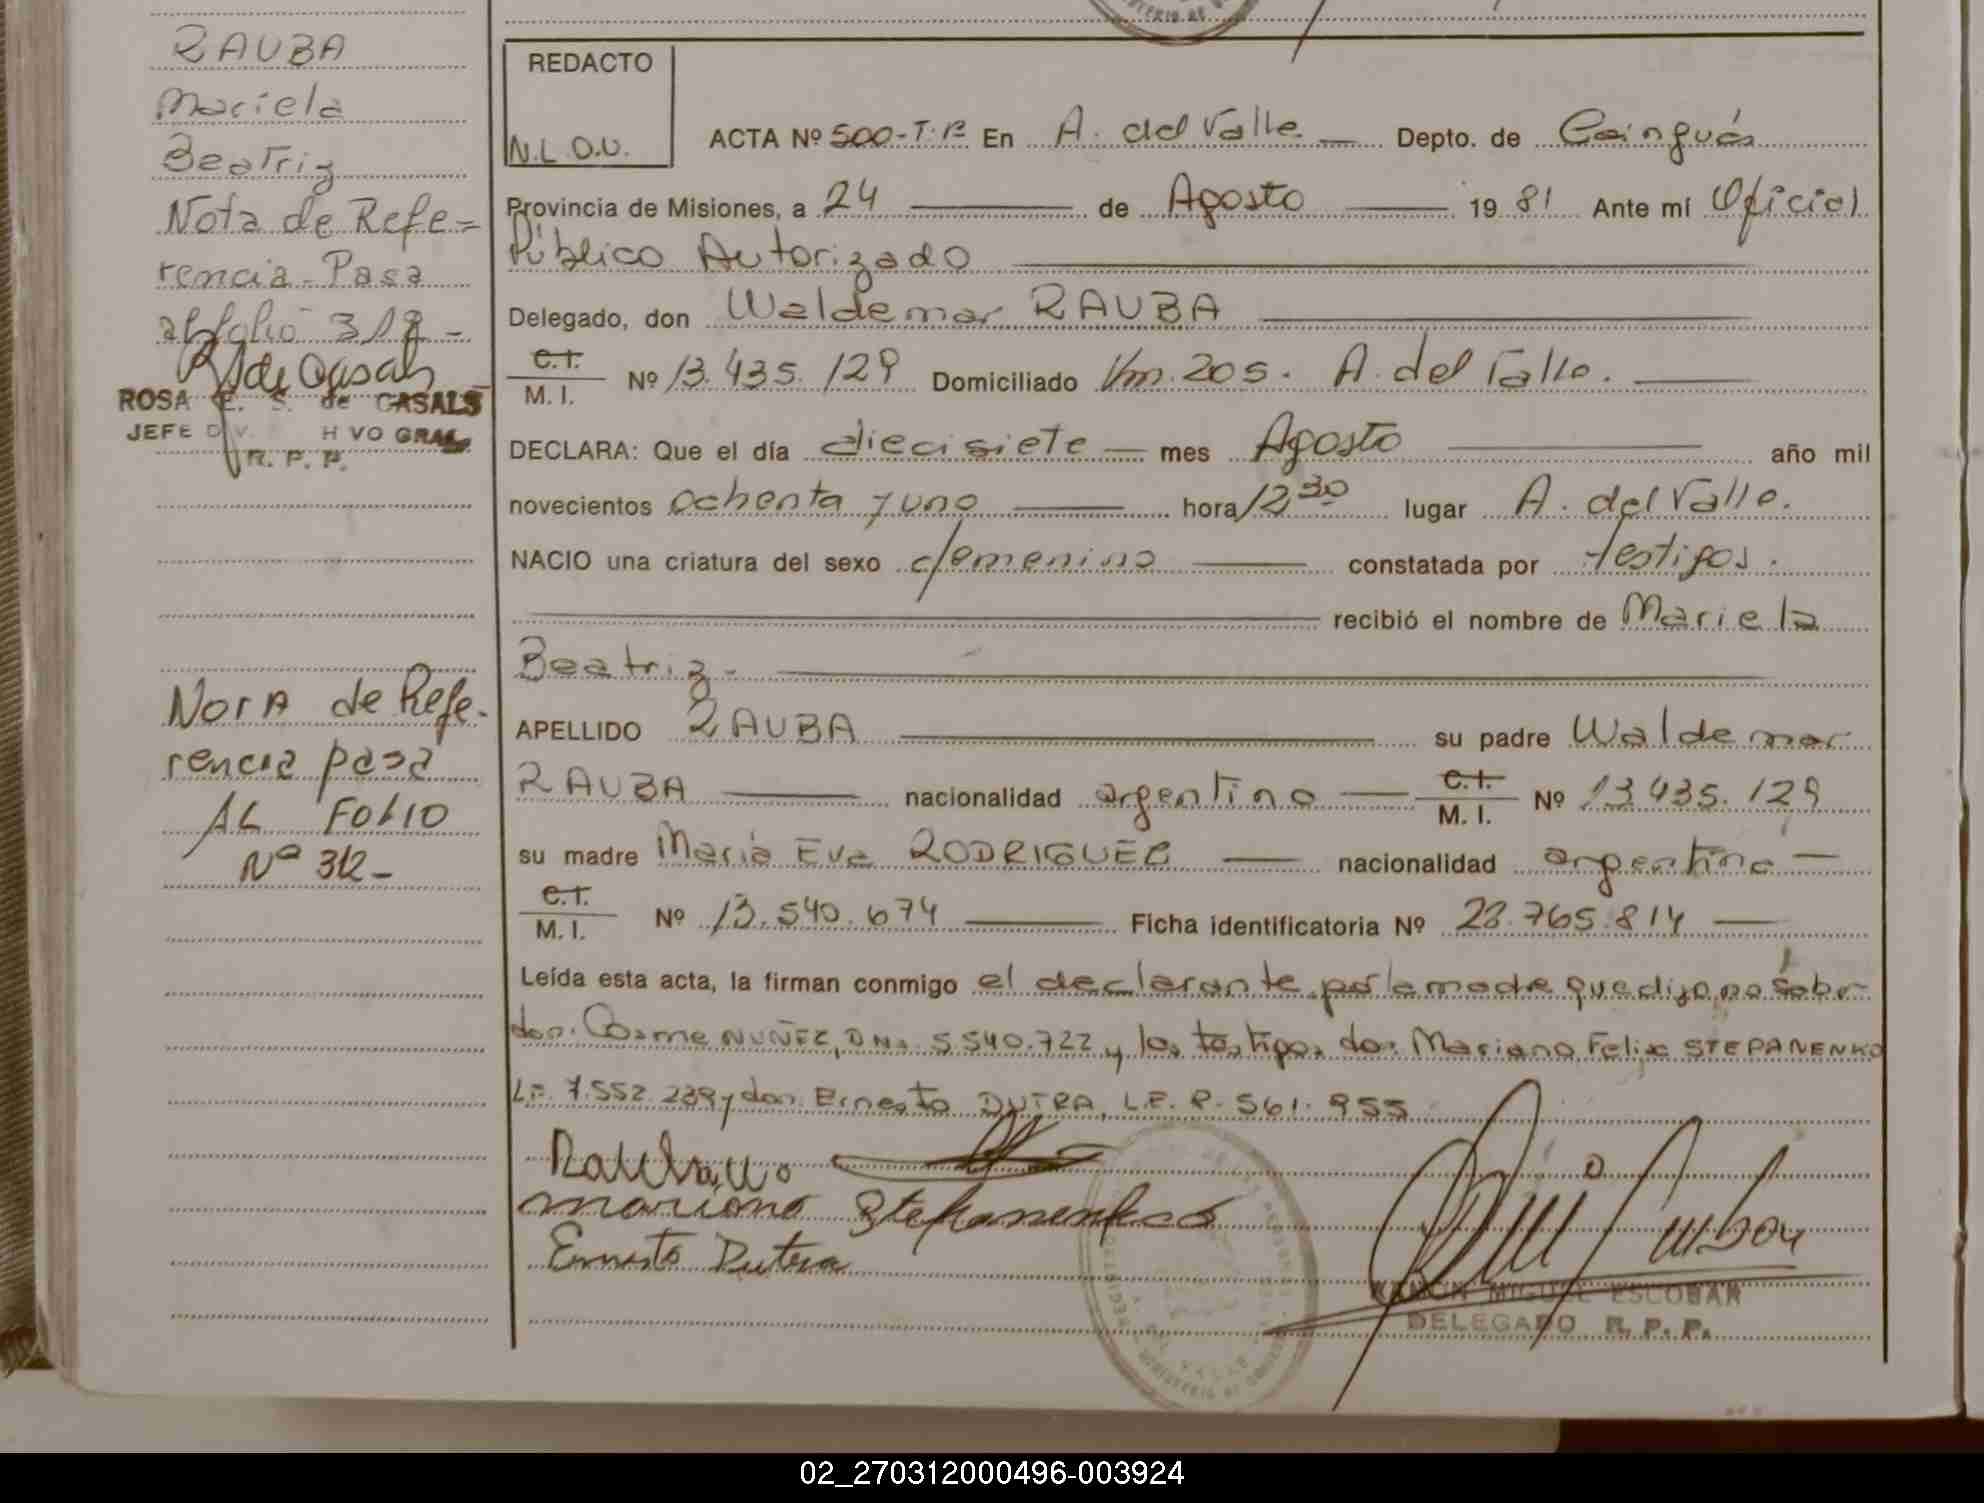 RAUBA
Mariela
Beatriz
Nota de Refe=
rencia - Pasa
al folio 312 -
ROSA E. S. de CASALS
JEFE DIV. HIVO GRAL.
R. P. P.
Nota de Refe-
rencia pasa
AL FOLIO
Nº 312-
REDACTO
N.L.O.U.
ACTA Nº 500-T.B En A. del Valle — Depto. de Cainguás
Provincia de Misiones, a 24 — de Agosto — 19 81 Ante mí Oficial
Público Autorizado
Delegado, don Waldemar RAUBA
C.I.
M. I. Nº 13.435.129 Domiciliado Km. 205. A. del Valle.
DECLARA: Que el día diecisiete — mes Agosto — año mil
novecientos ochenta y uno — hora 12 30 lugar A. del Valle.
NACIO una criatura del sexo femenino — constatada por testigos.
recibió el nombre de Mariela
Beatriz -
APELLIDO RAUBA su padre Waldemar
RAUBA — nacionalidad argentino — C.I. M. I. Nº 13.435.129
su madre María Eva RODRIGUEZ — nacionalidad argentina —
C.I.
M. I. Nº 13.540.674 — Ficha identificatoria Nº 28.765.814 —
Leída esta acta, la firman conmigo el declarante, por la madre que dijo no saber
don Cosme NUÑEZ, DNI. 5.540.722 y los testigos don Mariano Felix STEPANENKO
L.E. 7.552.239 y don Ernesto DUTRA, L.E. 8.561.955
Mariano Stepanenko
Ernesto Dutra
RAMON MIGUEL ESCOBAR
DELEGADO R. P. P.
02_270312000496-003924